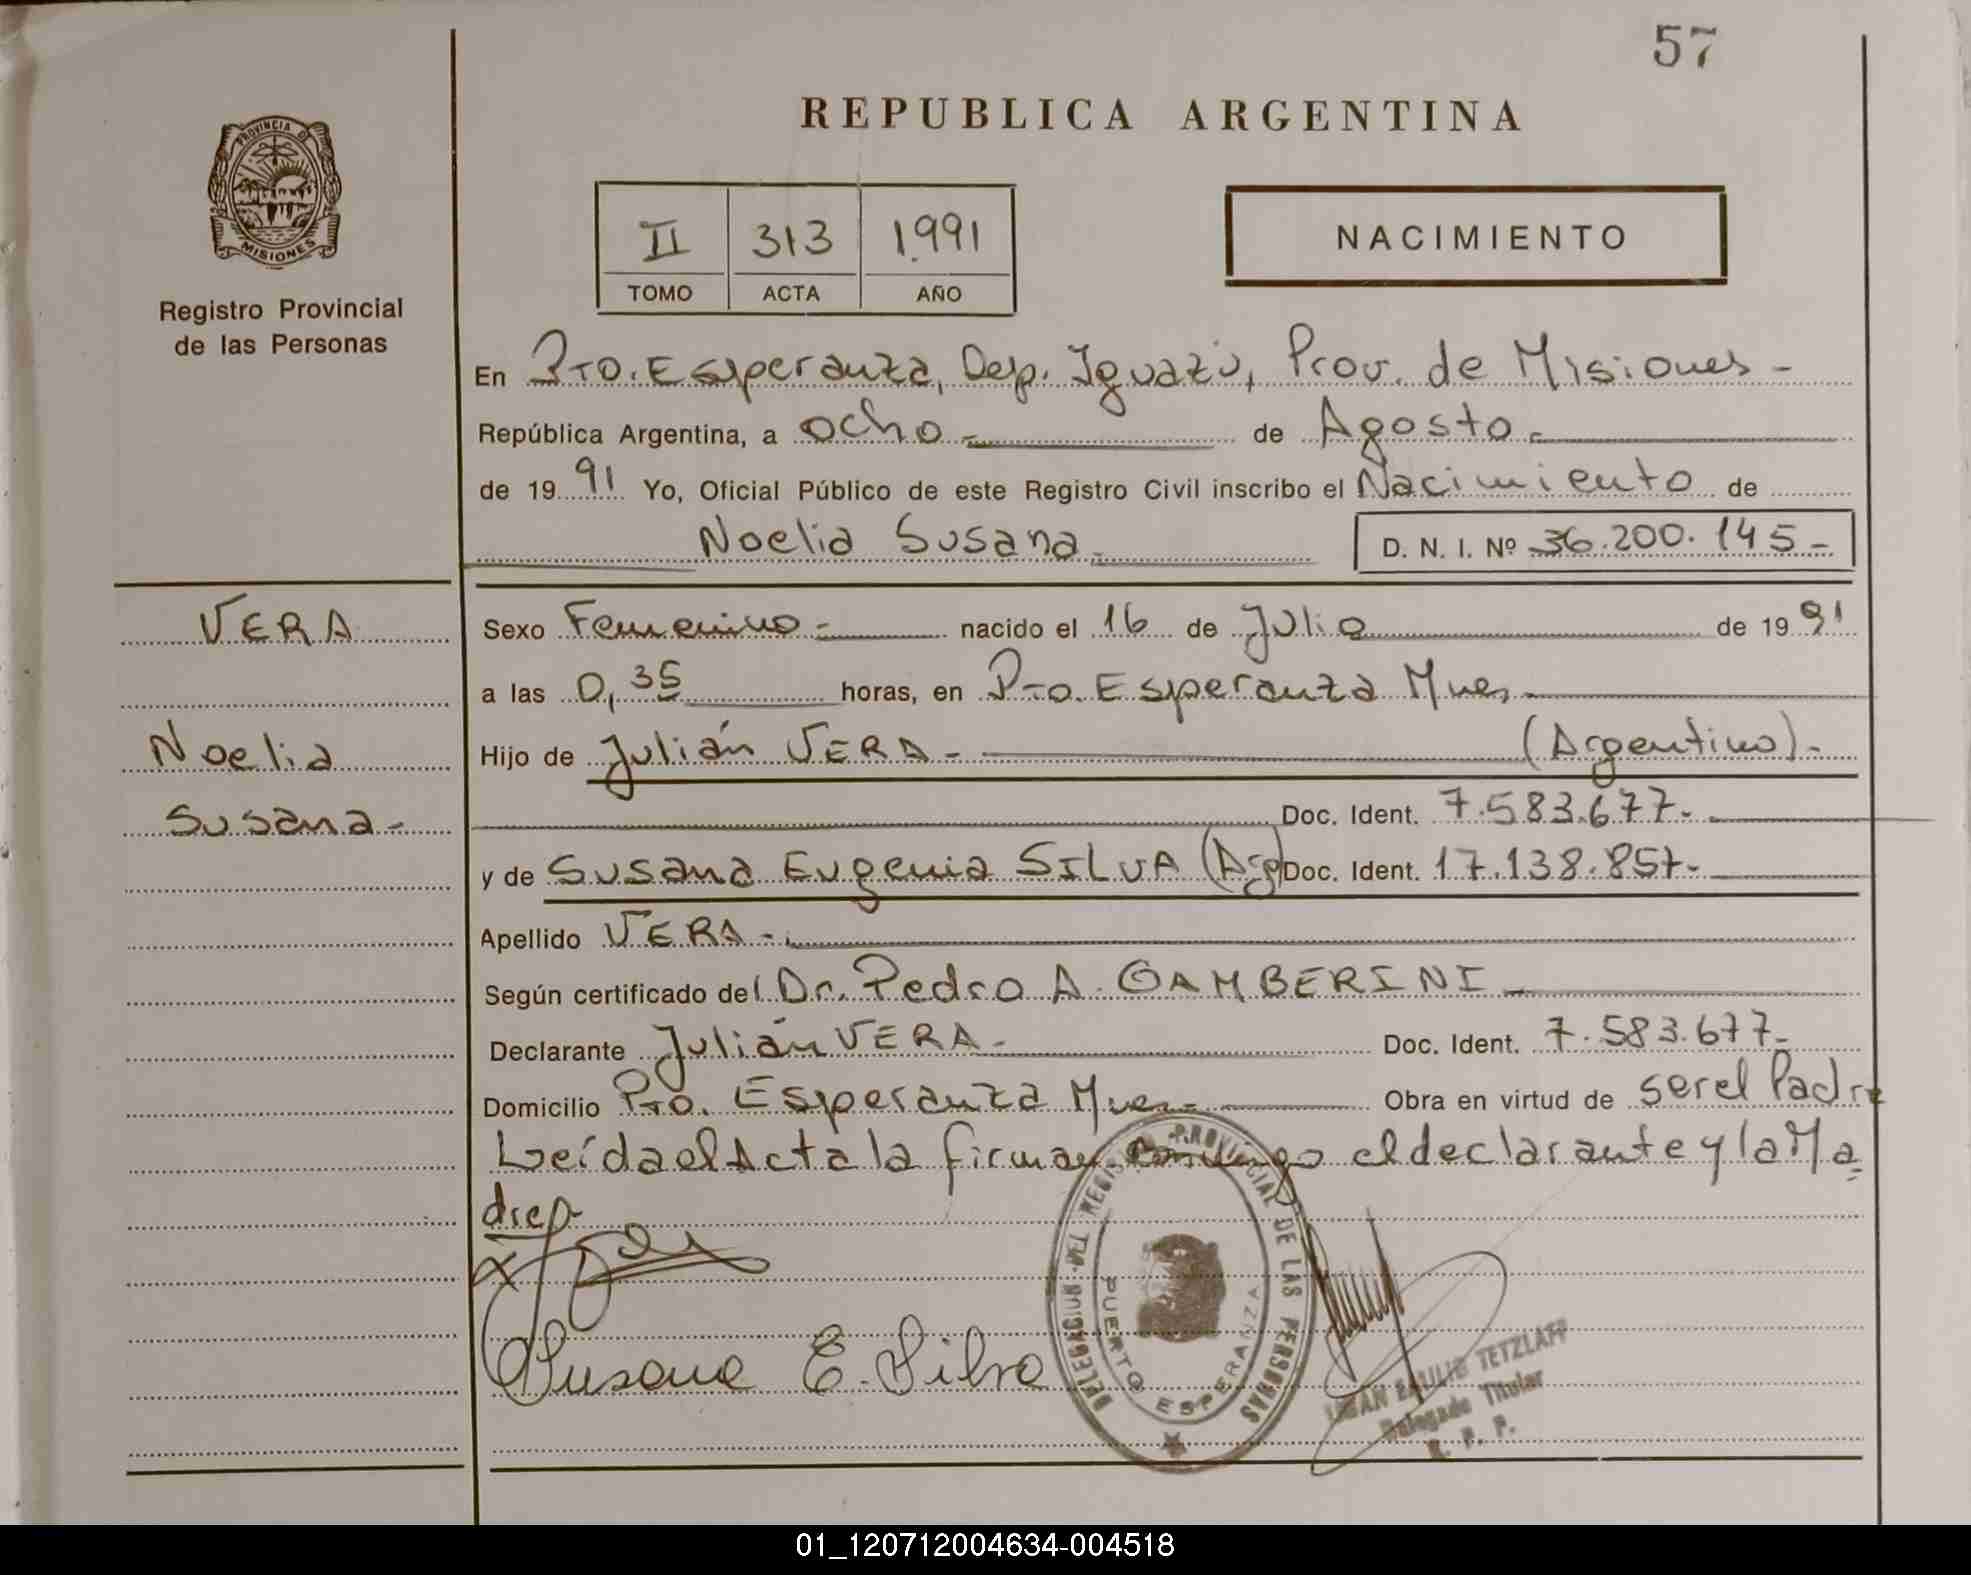 57
REPUBLICA ARGENTINA
PROVINCIA D
MISIONES
Registro Provincial
de las Personas
II 313 1.991
TOMO ACTA AÑO
NACIMIENTO
En Pto. Esperanza, Dep. Iguazú, Prov. de Misiones -
República Argentina, a ocho - de Agosto -
de 19 91 Yo, Oficial Público de este Registro Civil inscribo el Nacimiento de
Noelia Susana - D. N. I. Nº 36.200.145 -
VERA
Noelia
Susana -
Sexo Femenino - nacido el 16 de Julio de 19 91
a las 0,35 horas, en Pto. Esperanza Mnes -
Hijo de Julián VERA - (Argentino) -
Doc. Ident. 7.583.677 -
y de Susana Eugenia SILVA (Arg) Doc. Ident. 17.138.857 -
Apellido VERA -
Según certificado del Dr. Pedro A. GAMBERINI -
Declarante Julián VERA - Doc. Ident. 7.583.677 -
Domicilio Pto. Esperanza Mnes - Obra en virtud de ser el Padre
Leída el Acta la firman conmigo el declarante y la Ma
dre -
Susana E. Silva
DELEGACION DEL REGISTRO PROVINCIAL DE LAS PERSONAS
PUERTO ESPERANZA
JUAN EMILIO TETZLAFF
Delegado Titular
R. P. P.
01_120712004634-004518